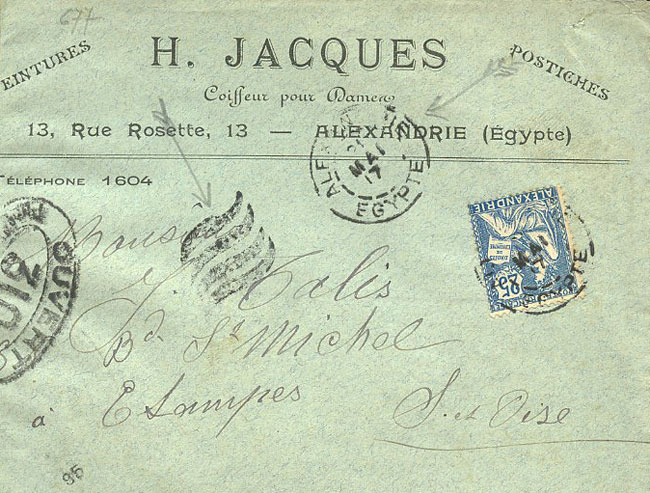 677
TEINTURES
H. JACQUES
POSTICHES
Coiffeur pour Dames
13, Rue Rosette, 13 — ALEXANDRIE (Égypte)
TÉLÉPHONE 1604
MAI
17
EGYPTE
ALEXANDRIE
25
MAI
OUVERT
Bd. St Michel
à
Etampes
S. et Oise
95